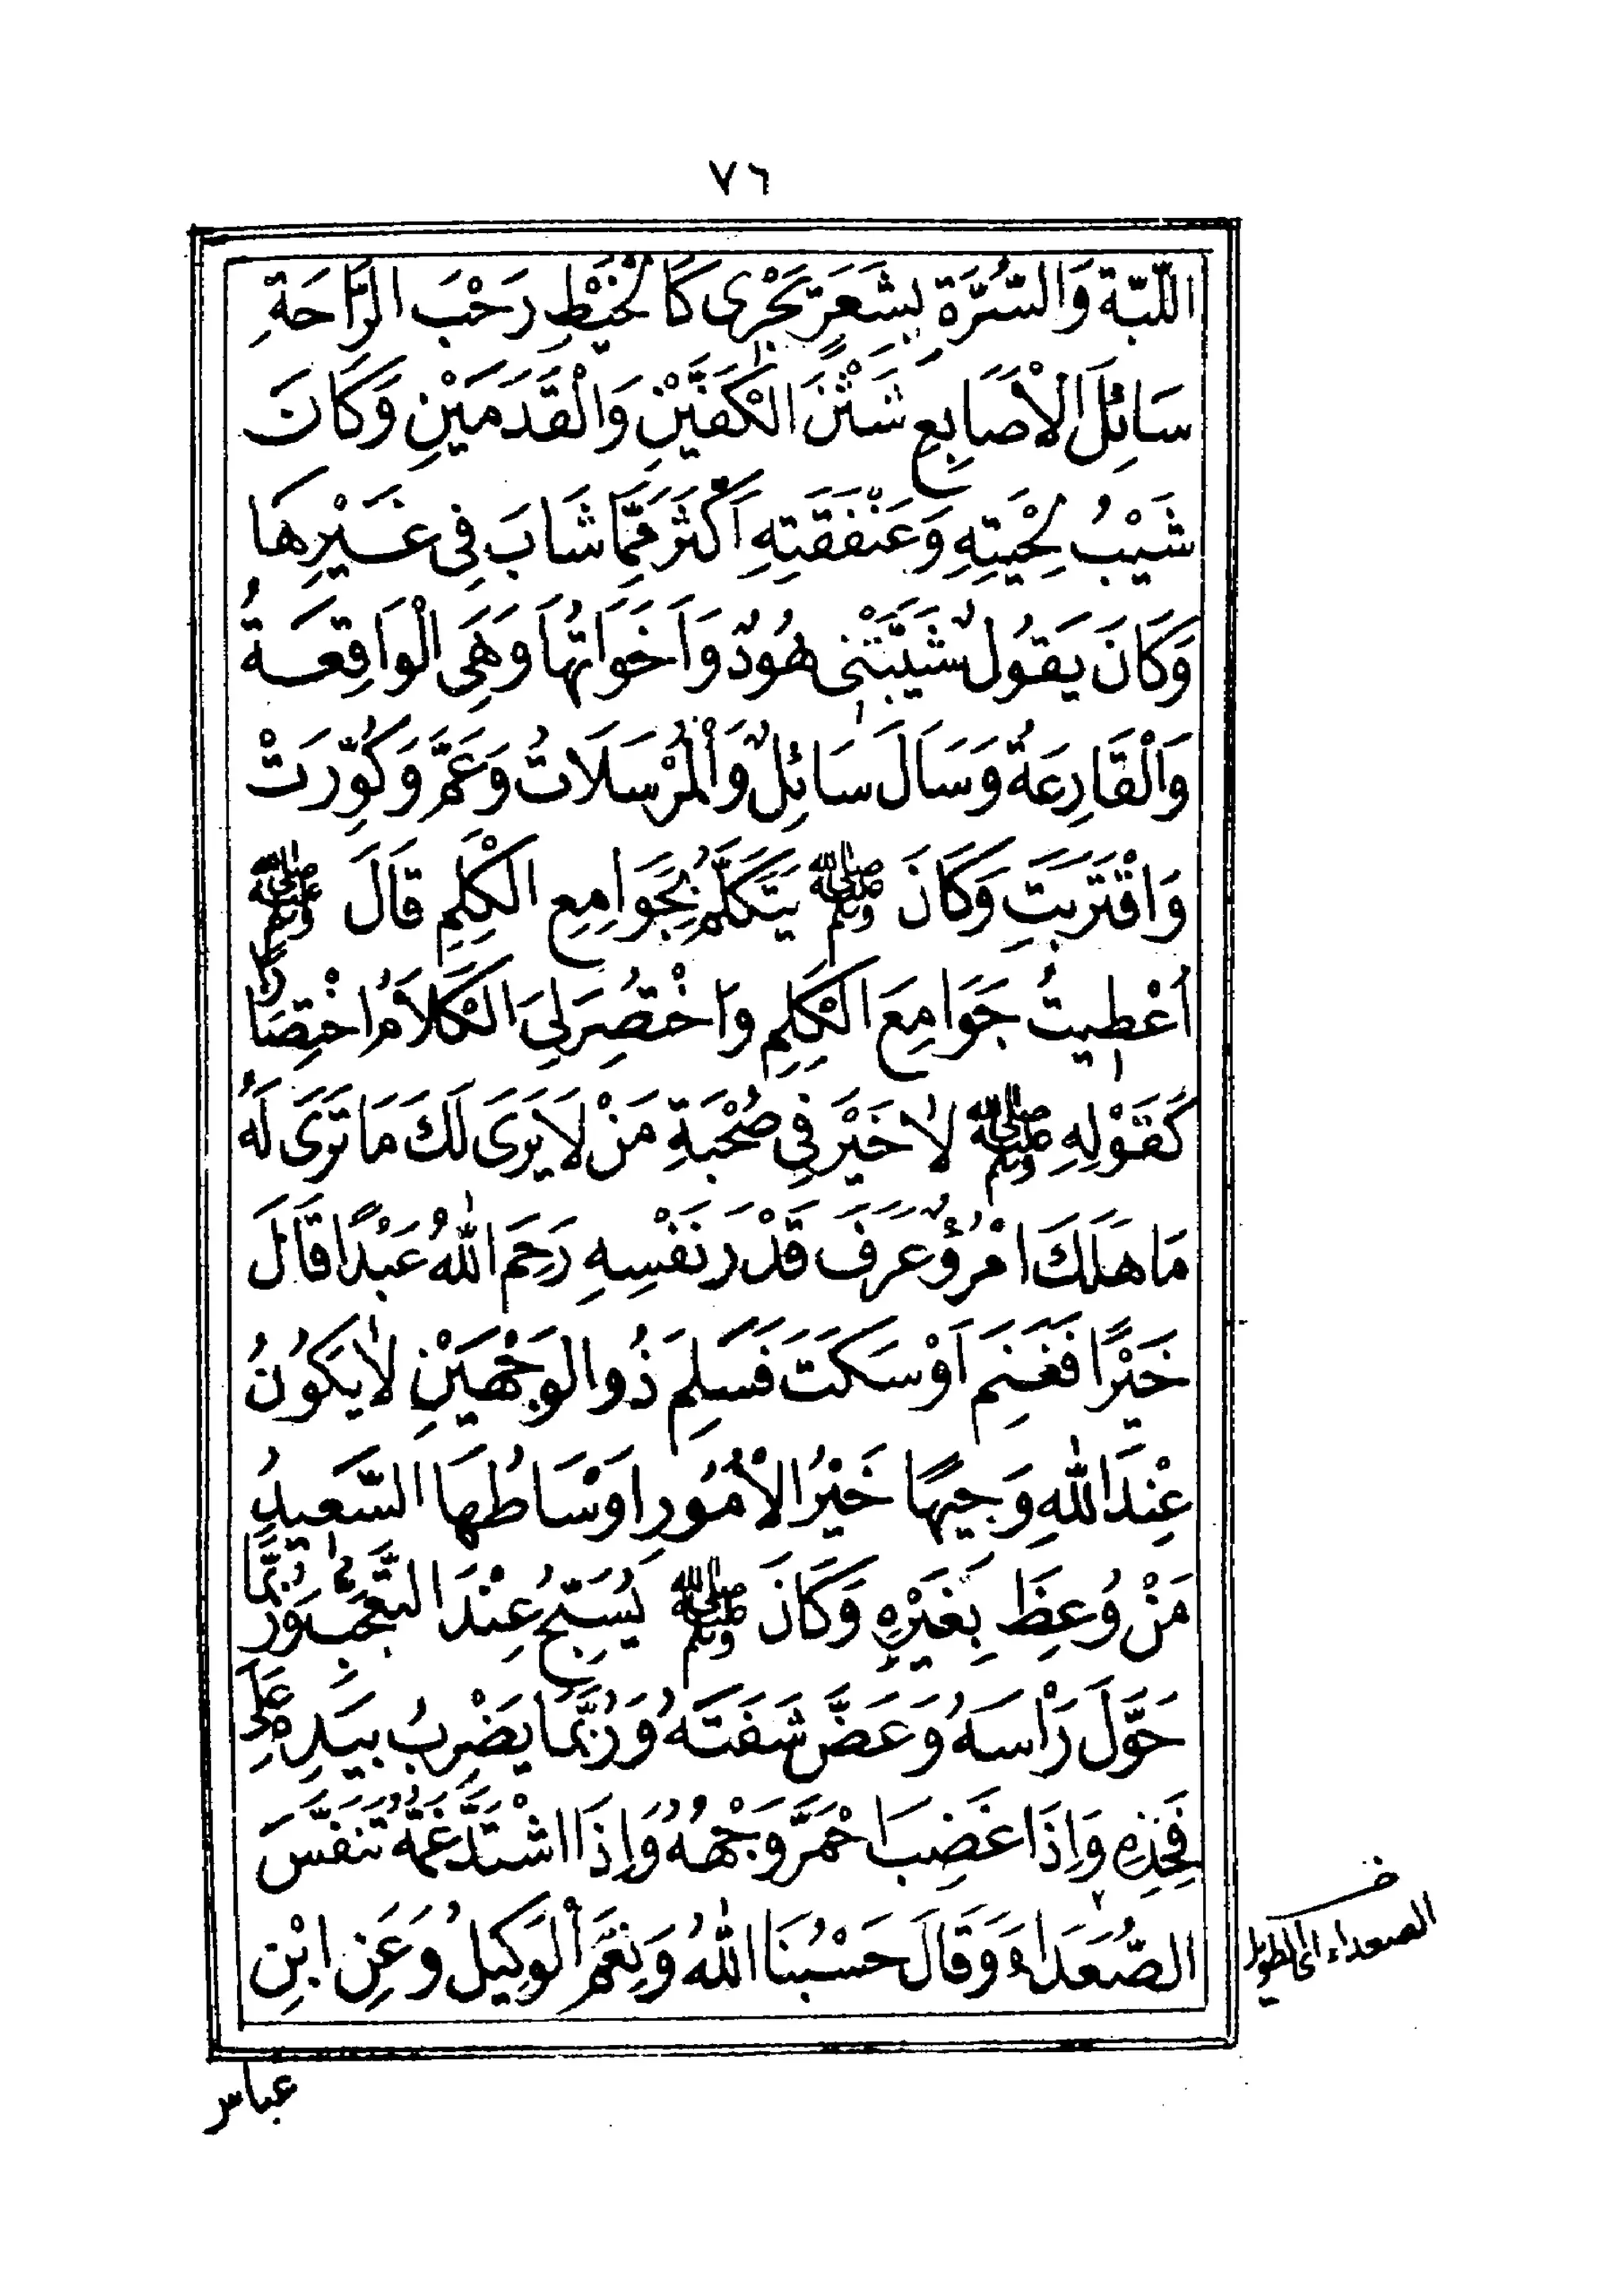 ٧٦
اللَّبَّةِ وَالسُّرَّةِ بِشَعَرٍ يَجْرِى كَالْخَيْطِ رَحْبَ الرَّاحَةِ
سَائِلَ الْاَصَابِعِ شَثْنَ الْكَفَّيْنِ وَالْقَدَمَيْنِ وَكَانَ
شَيْبُ لِحْيَتِهِ وَعَنْفَقَتِهِ اَكْثَرَ مِمَّا شَابَ فِى غَيْرِهَا
وَكَانَ يَقُولُ شَيَّبَتْنِى هُودٌ وَاَخَوَاتُهَا وَهِيَ الْوَاقِعَةُ
وَالْقَارِعَةُ وَسَاَلَ سَائِلٌ وَالْمُرْسَلَاتُ وَعَمَّ وَكُوِّرَتْ
وَاقْتَرَبَتِ وَكَانَ ﷺ يَتَكَلَّمُ بِجَوَامِعِ الْكَلِمِ قَالَ ﷺ
اُعْطِيتُ جَوَامِعَ الْكَلِمِ وَاخْتُصِرَ لِيَ الْكَلَامُ اخْتِصَارًا
كَقَوْلِهِ ﷺ لَا خَيْرَ فِى صُحْبَةِ مَنْ لَا يَرَى لَكَ مَا تَرَى لَهُ
مَا هَلَكَ امْرُؤٌ عَرَفَ قَدْرَ نَفْسِهِ رَحِمَ اللهُ عَبْدًا قَالَ
خَيْرًا فَغَنِمَ اَوْ سَكَتَ فَسَلِمَ ذُو الوَجْهَيْنِ لَا يَكُونُ
عِنْدَ اللهِ وَجِيهًا خَيْرُ الْاُمُورِ اَوْسَاطُهَا السَّعِيدُ
مَنْ وُعِظَ بِغَيْرِهِ وَكَانَ ﷺ يُسَبِّحُ عِنْدَ التَّعَجُّبِ وَرُبَّمَا
حَوَّلَ رَاْسَهُ وَعَضَّ شَفَتَهُ وَرُبَّمَا يَضْرِبُ بِيَدِهِ عَلَى
فَخِذِهِ وَاِذَا غَضِبَ احْمَرَّ وَجْهُهُ وَاِذَا اشْتَدَّ غَمُّهُ تَنَفَّسَ
الصُّعَدَاءَ وَقَالَ حَسْبُنَا اللهُ وَنِعْمَ الْوَكِيلُ وَعَنِ ابْنِ
الصعداء اى الطويل
عباس